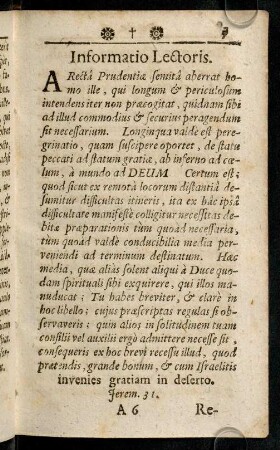 ✠ † ✠ 9
Informatio Lectoris.
A Rectâ Prudentiæ semitâ aberrat ho-
mo ille, qui longum & periculosum
intendens iter non præcogitat, quidnam sibi
ad illud commodius & securius peragendum
sit necessarium. Longinqua valdè est pere-
grinatio, quam suscipere oportet, de statu
peccati ad statum gratiæ, ab inferno ad cœ-
lum, à mundo ad DEUM Certum est;
quod sicut ex remotâ locorum distantiâ de-
sumitur difficultas itineris, ita ex hâc ipsâ
difficultate manifestè colligitur necessitas de-
bitæ præparationis tùm quoad necessaria,
tùm quoad valdè conducibilia media per-
veniendi ad terminum destinatum. Hæc
media, quæ aliàs solent aliqui à Duce quo-
dam spirituali sibi exquirere, qui illos ma-
nuducat; Tu habes breviter, & clarè in
hoc libello; cujus præscriptas regulas si ob-
servaveris; quin alios in solitudinem tuam
consilii vel auxilii ergò admittere necesse sit,
consequeris ex hoc brevi recessu illud, quod
prætendis, grande bonum, & cum Israelitis
invenies gratiam in deserto.
Jerem. 31.
A 6 Re-